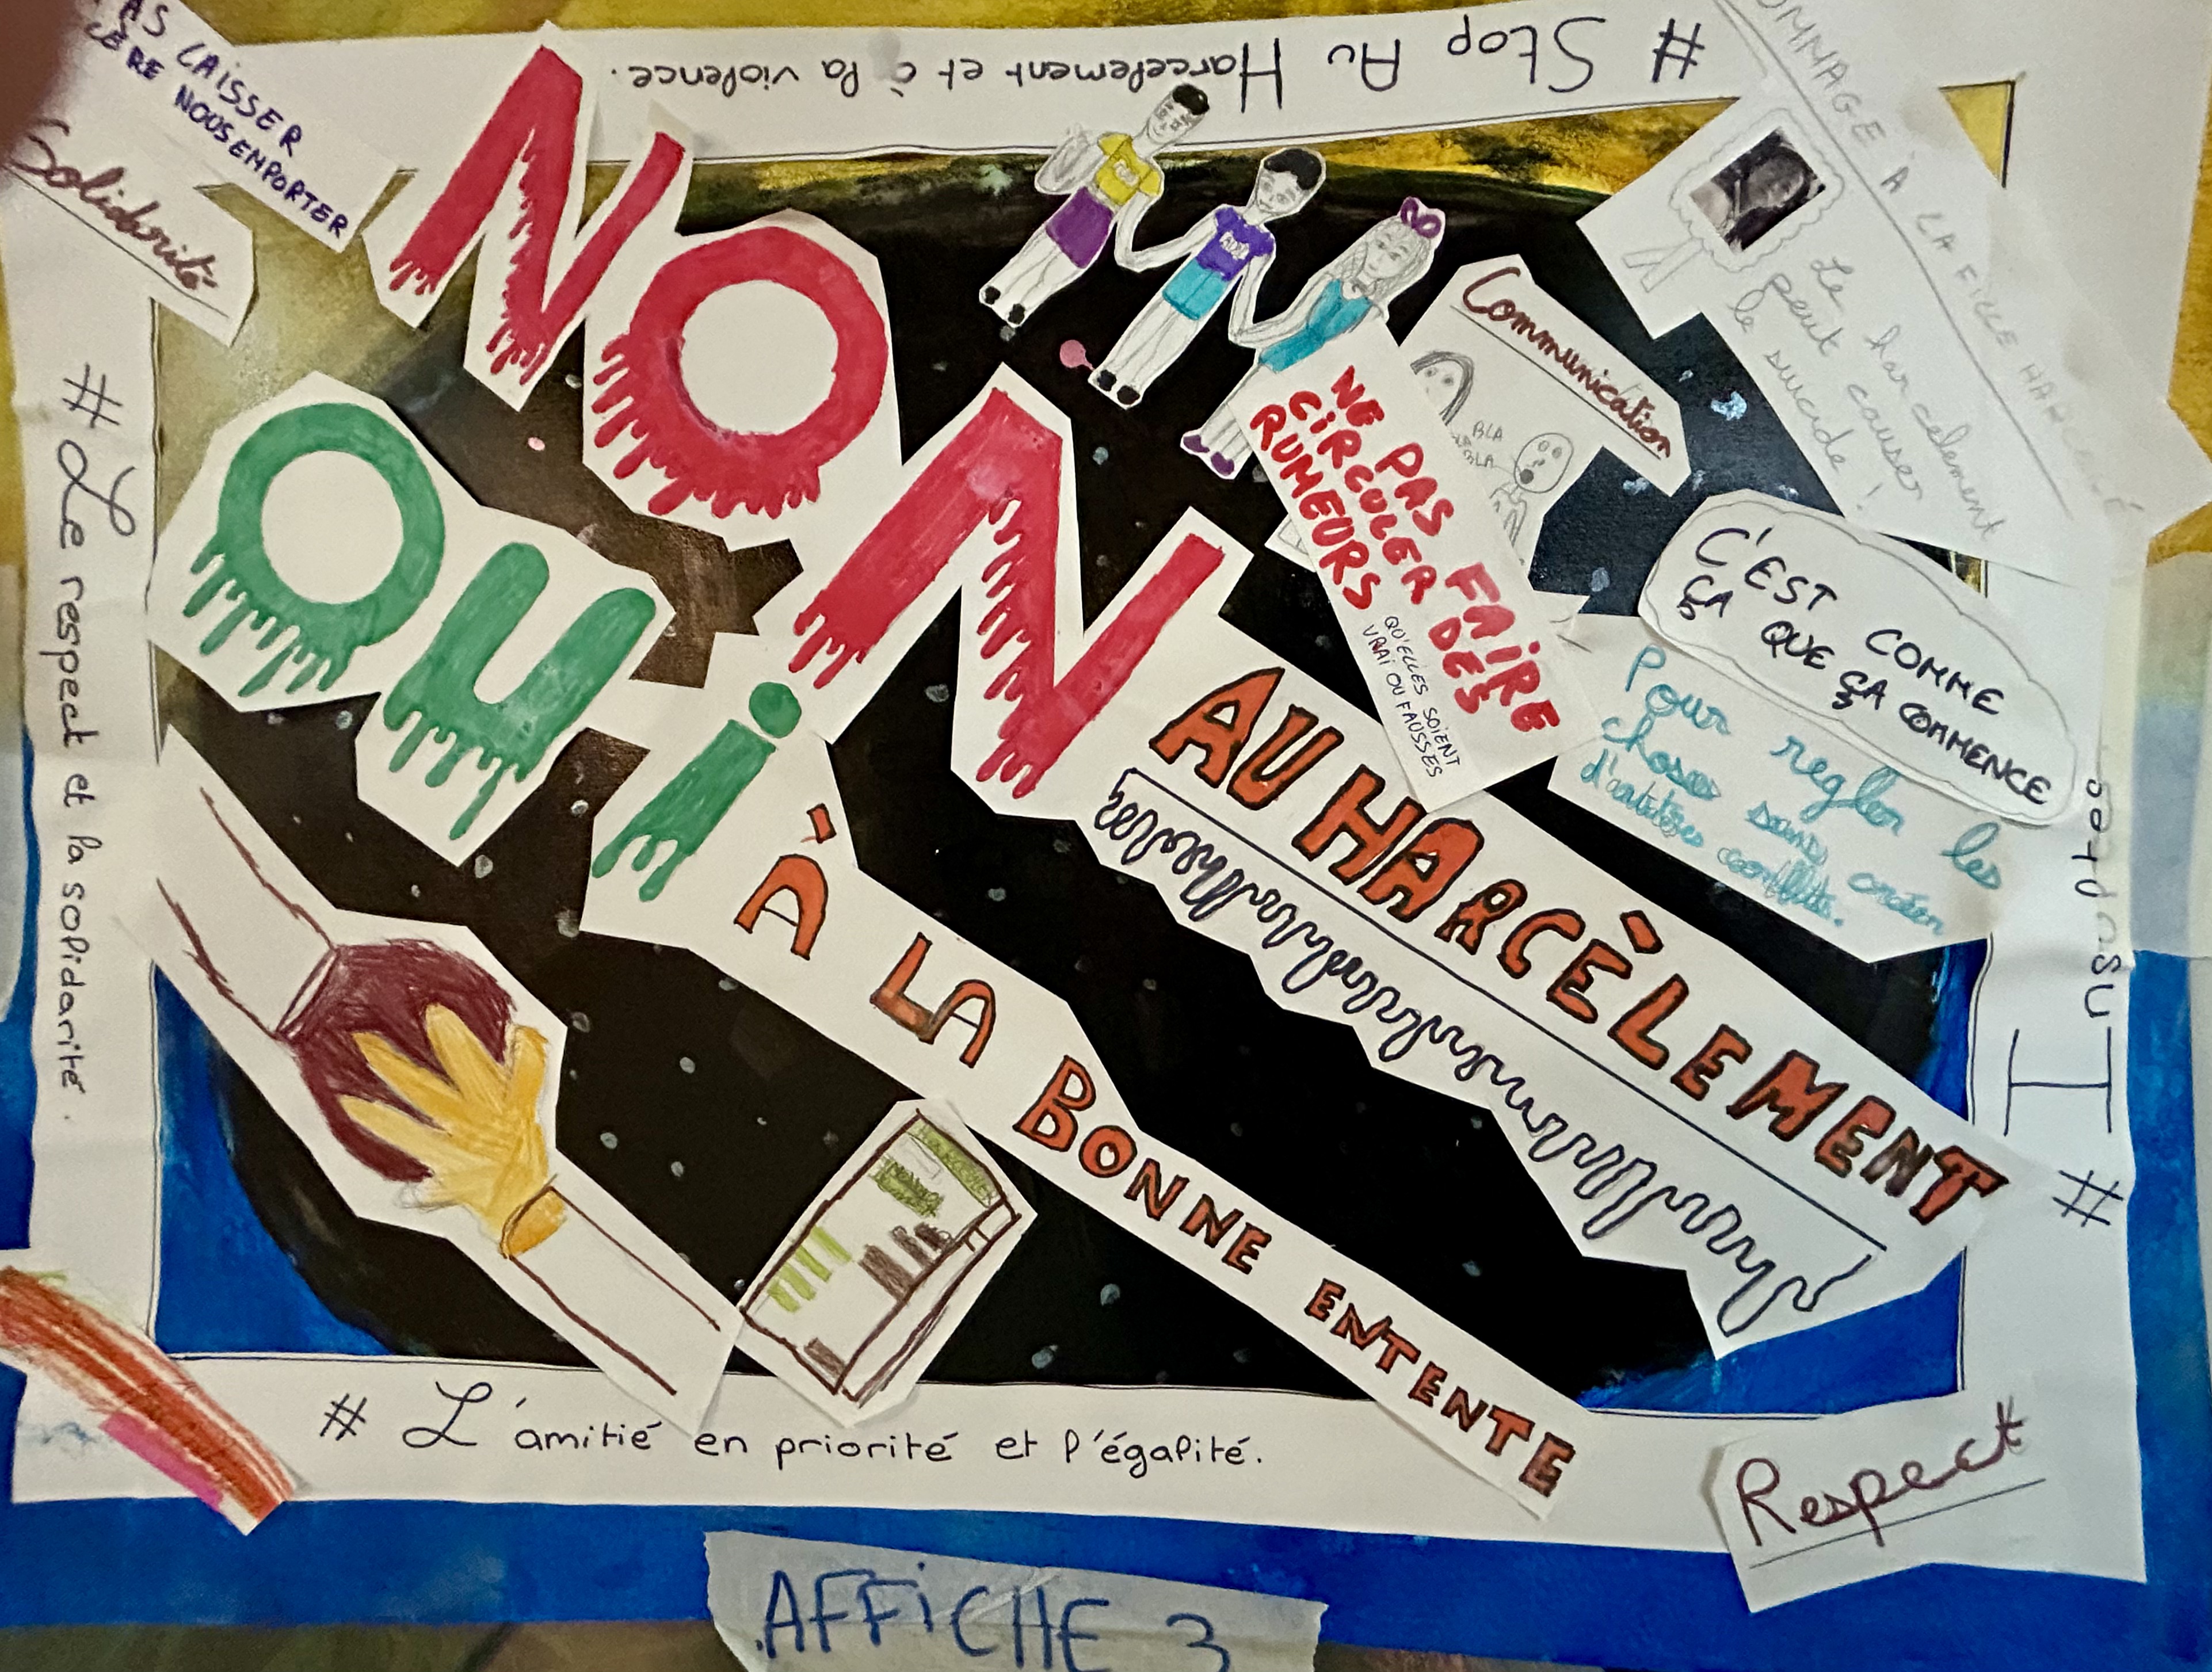 # Stop Au Harcelement et à la violence.
AS LAISSER
ÈRE NOUS EMPORTER
Solidarité
NON
AU HARCÈLEMENT
OUi
À LA BONNE ENTENTE
Communication
BLA
BLA
NE PAS FAIRE
CiRCULER DES
RUMEURS
QU'ELLES SOIENT
VRAI OU FAUSSES
OMMAGE À LA FILLE HARCELÉ
Le harcelement
peut causer
le suicide !
C'EST COMME
ÇA QUE ÇA COMMENCE
Pour regler les
choses sans créer
d'autres conflits.
# Le respect et la solidarité.
# L'amitié en priorité et l'égalité.
Respect
AFFiCHE 3